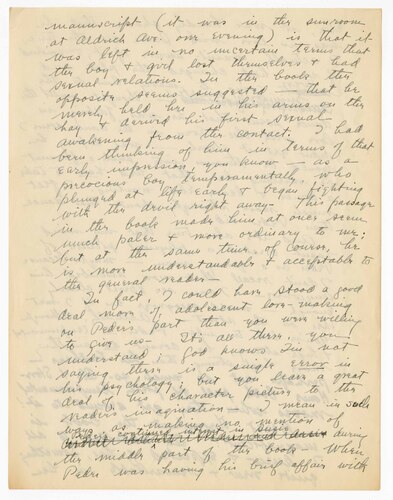 manuscript (it was in the sunroom
at Aldrich Ave one evening) is that it
was left in no uncertain terms that
the boy & girl lost themselves & had
sexual relations. In the book the
opposite seems suggested — that he
merely held her in his arms on the
hay & derived his first sexual
awakening from the contact. I had
been thinking of him in terms of that
early impression, you know — as a
precocious boy, temperamentally, who
plunged at life early & began fighting
with the devil right away. This passage
in the book made him at once seem
much paler & more ordinary to me;
but at the same time, of course, he
is more understandable & acceptable to
the general reader —
In fact, I could have stood a good
deal more of adolescent love-making
on Peder's part than you were willing
to give us — It's all there, you
understand; God knows I'm not
saying there is a single error in
his psychology; but you leave a great
deal of his character picture to the
reader's imagination — I mean in such
ways as making no mention of
continued interest in during
the middle part of the book — When
Peder was having his brief affair with